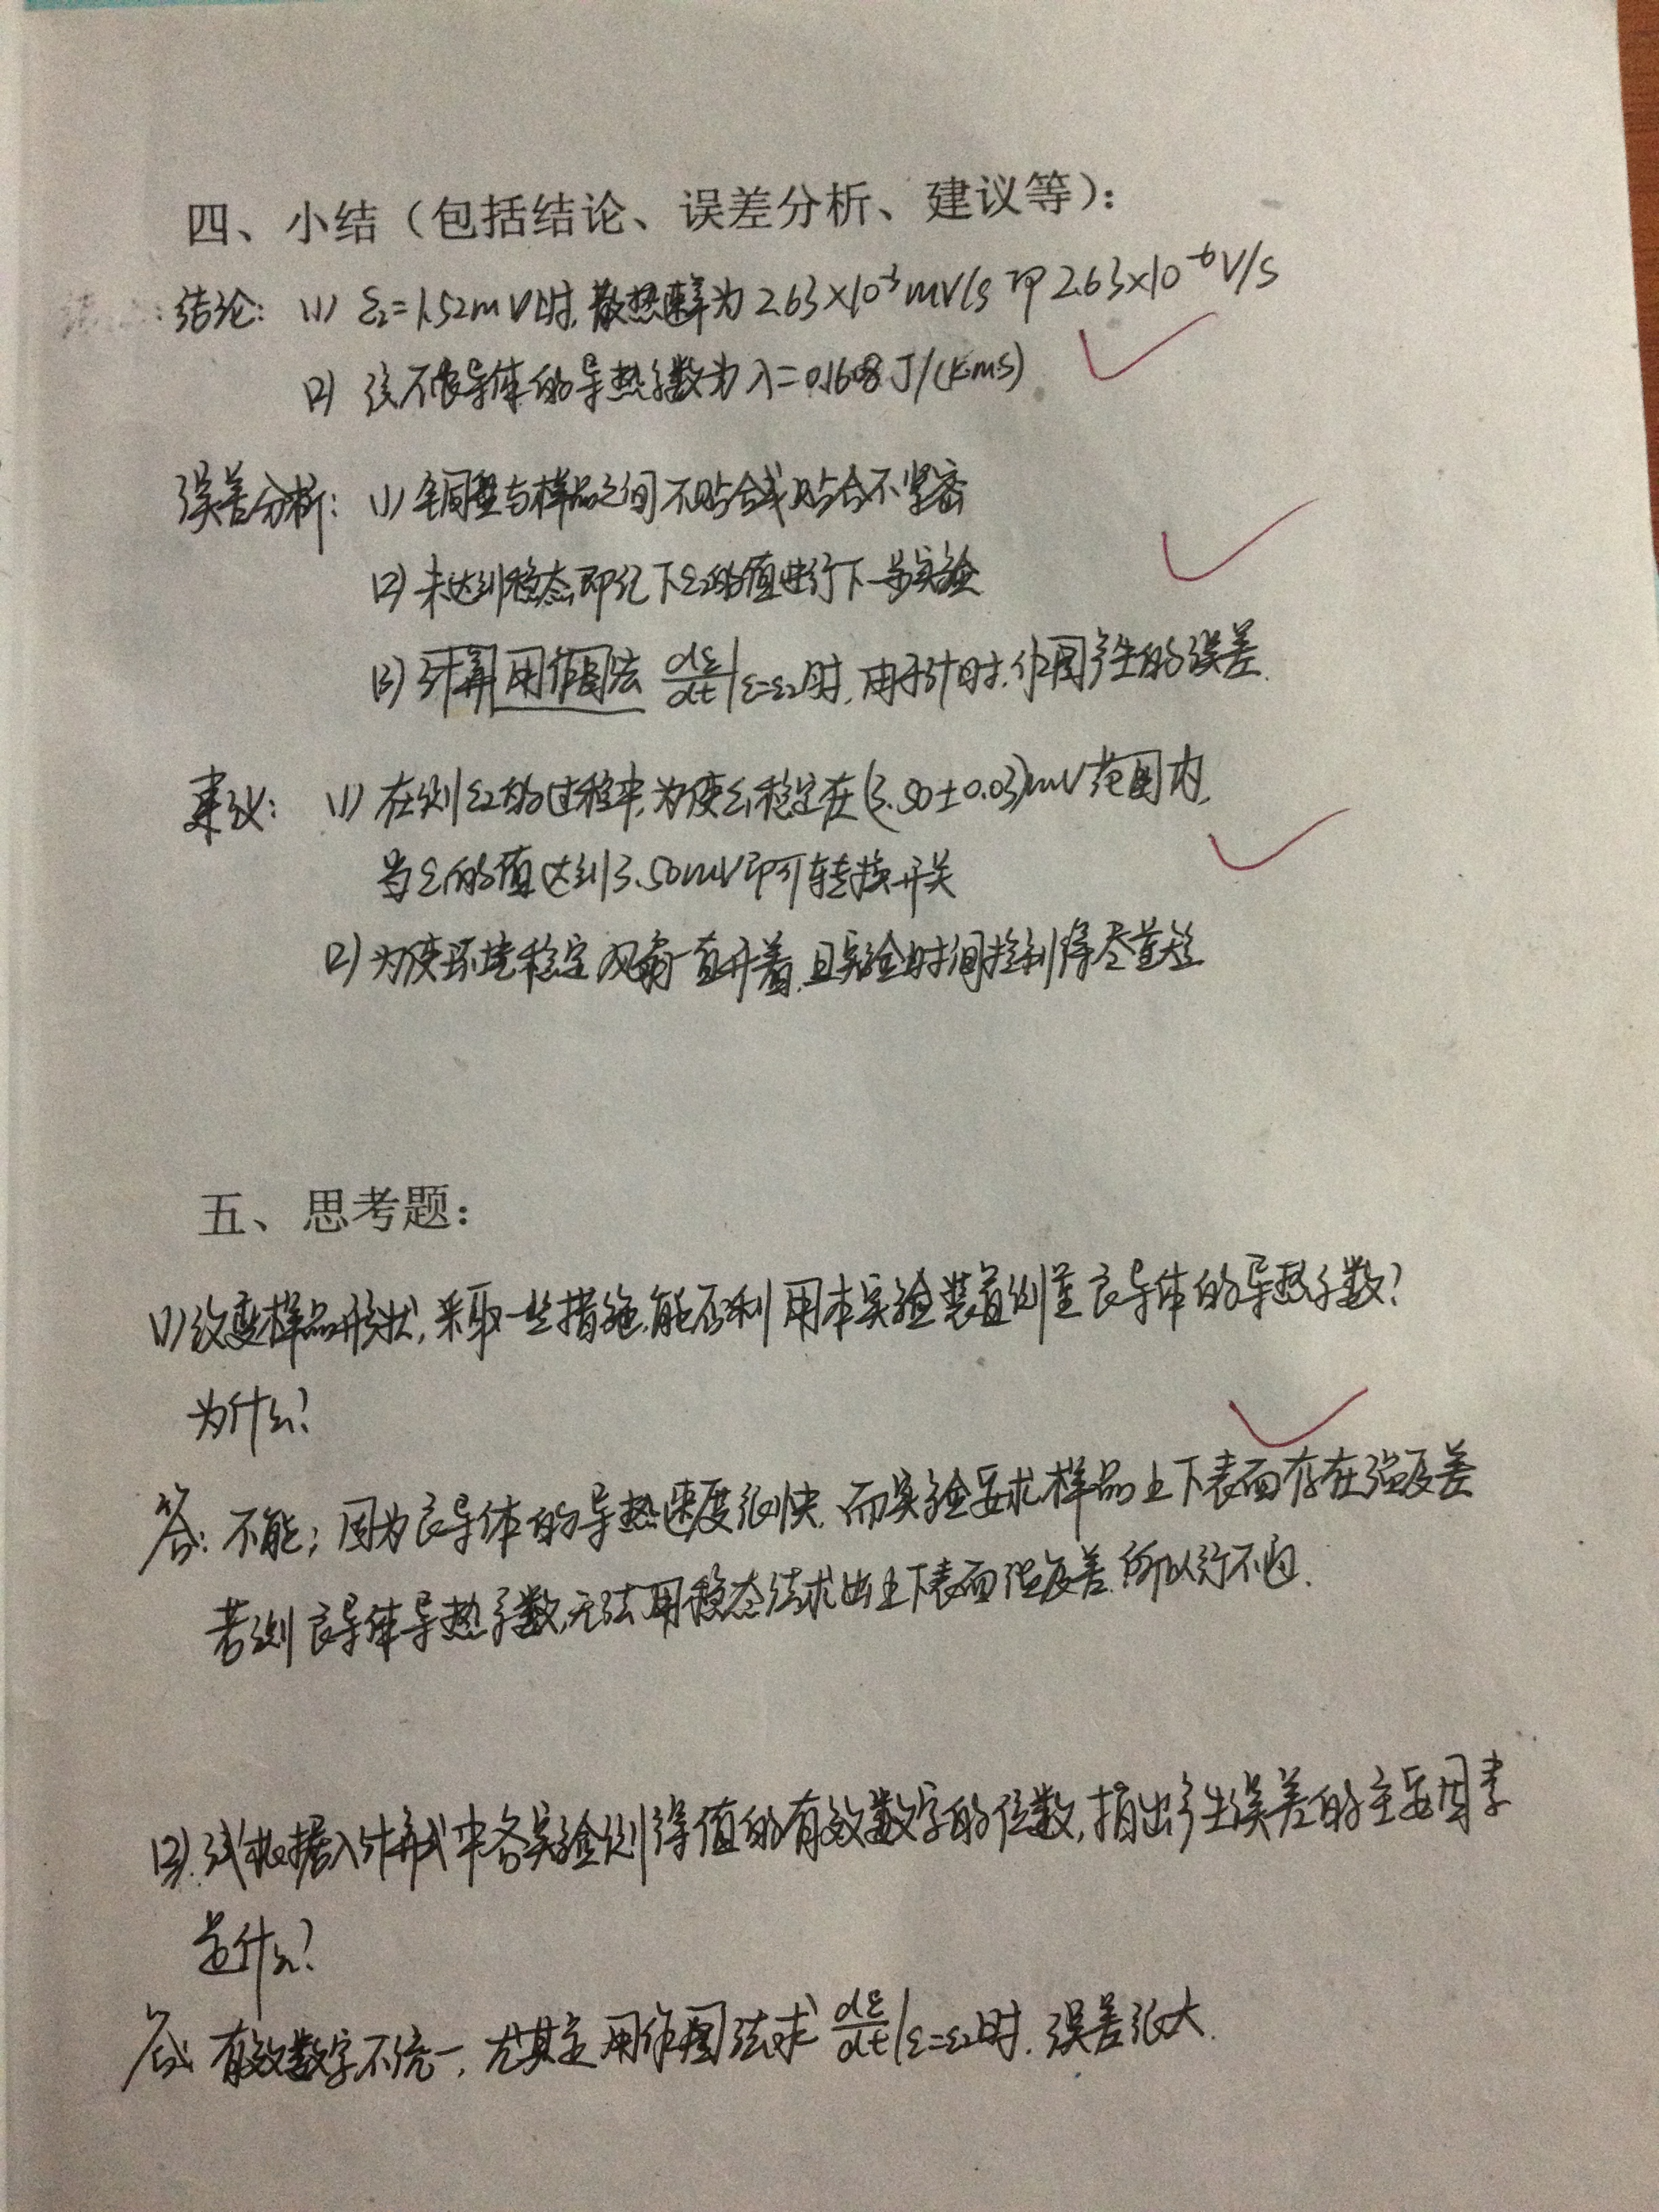 四、小结（包括结论、误差分析、建议等）：
结论: (1) ε₂=1.52mV时, 散热速率为 2.63×10⁻³mV/s 即 2.63×10⁻⁶V/s
(2) 该不良导体的导热系数为 λ=0.1608 J/(K·m·s)
误差分析: (1) 铜盘与样品之间不贴合或贴合不紧密
(2) 未达到稳态即记下ε₂的值进行下一步实验
(3) 计算用作图法 dε/dt|ε=ε₂时, 由于计时、作图产生的误差.
建议: (1) 在测ε₂的过程中,为使ε₁稳定在(3.50±0.03)mV范围内,
当ε₁的值达到3.50mV即可转换开关
(2) 为使环境稳定 风扇一直开着,且实验时间控制得尽量短
五、思考题：
(1) 改变样品形状,采取一些措施,能否利用本实验装置测量良导体的导热系数?
为什么?
答: 不能; 因为良导体的导热速度很快, 而实验要求样品上下表面存在温度差
若测良导体导热系数,无法用稳态法求出上下表面温度差,所以行不通.
(2). 试根据λ计算式中各实验测得值的有效数字的位数,指出产生误差的主要因素
是什么?
答: 有效数字不统一, 尤其是用作图法求 dε/dt|ε=ε₂时, 误差很大.